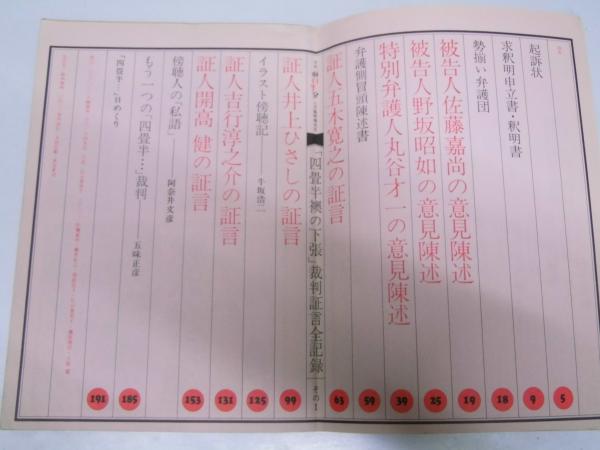 起訴状
5
求釈明申立書・釈明書
9
勢揃い弁護団
18
被告人佐藤嘉尚の意見陳述
19
被告人野坂昭如の意見陳述
25
特別弁護人丸谷才一の意見陳述
39
弁護側冒頭陳述書
59
証人五木寛之の証言
63
「四畳半襖の下張」裁判証言全記録
その1
証人井上ひさしの証言
99
イラスト傍聴記
125
証人吉行淳之介の証言
131
証人開高 健の証言
153
傍聴人の「私語」
阿奈井文彦
もう一つの「四畳半…」裁判
五味正彦
185
「四畳半…」日めくり
191